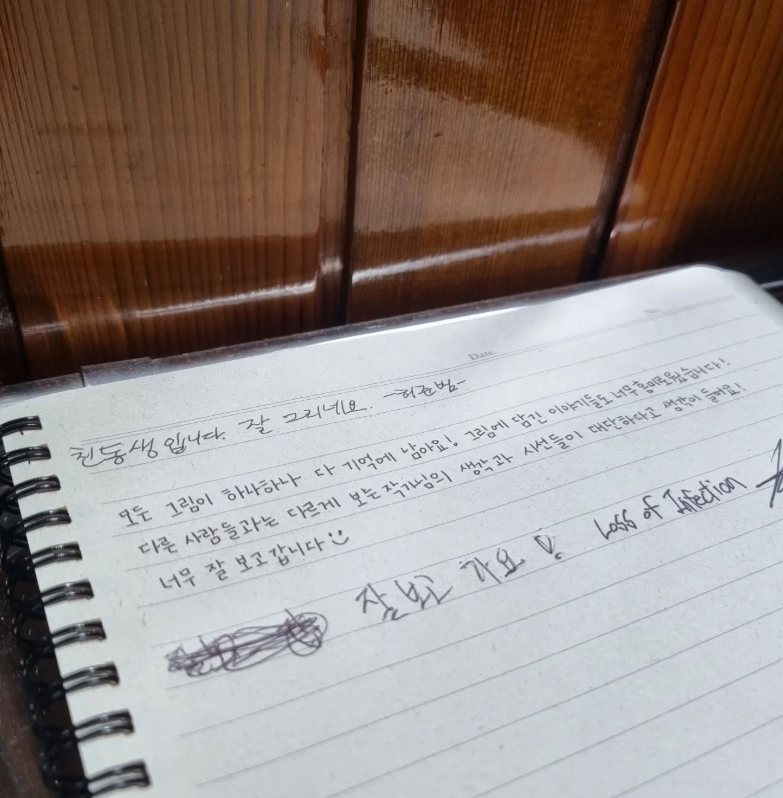 Date.
No.
친동생입니다. 잘 그리네요. -허준범-
모든 그림이 하나하나 다 기억에 남아요! 그림에 담긴 이야기들도 너무 흥미로웠습니다!
다른 사람들과는 다르게 보는 작가님의 생각과 시선들이 대단하다고 생각이 들어요!
너무 잘 보고갑니다
잘 보고 가요 Loss of Infection